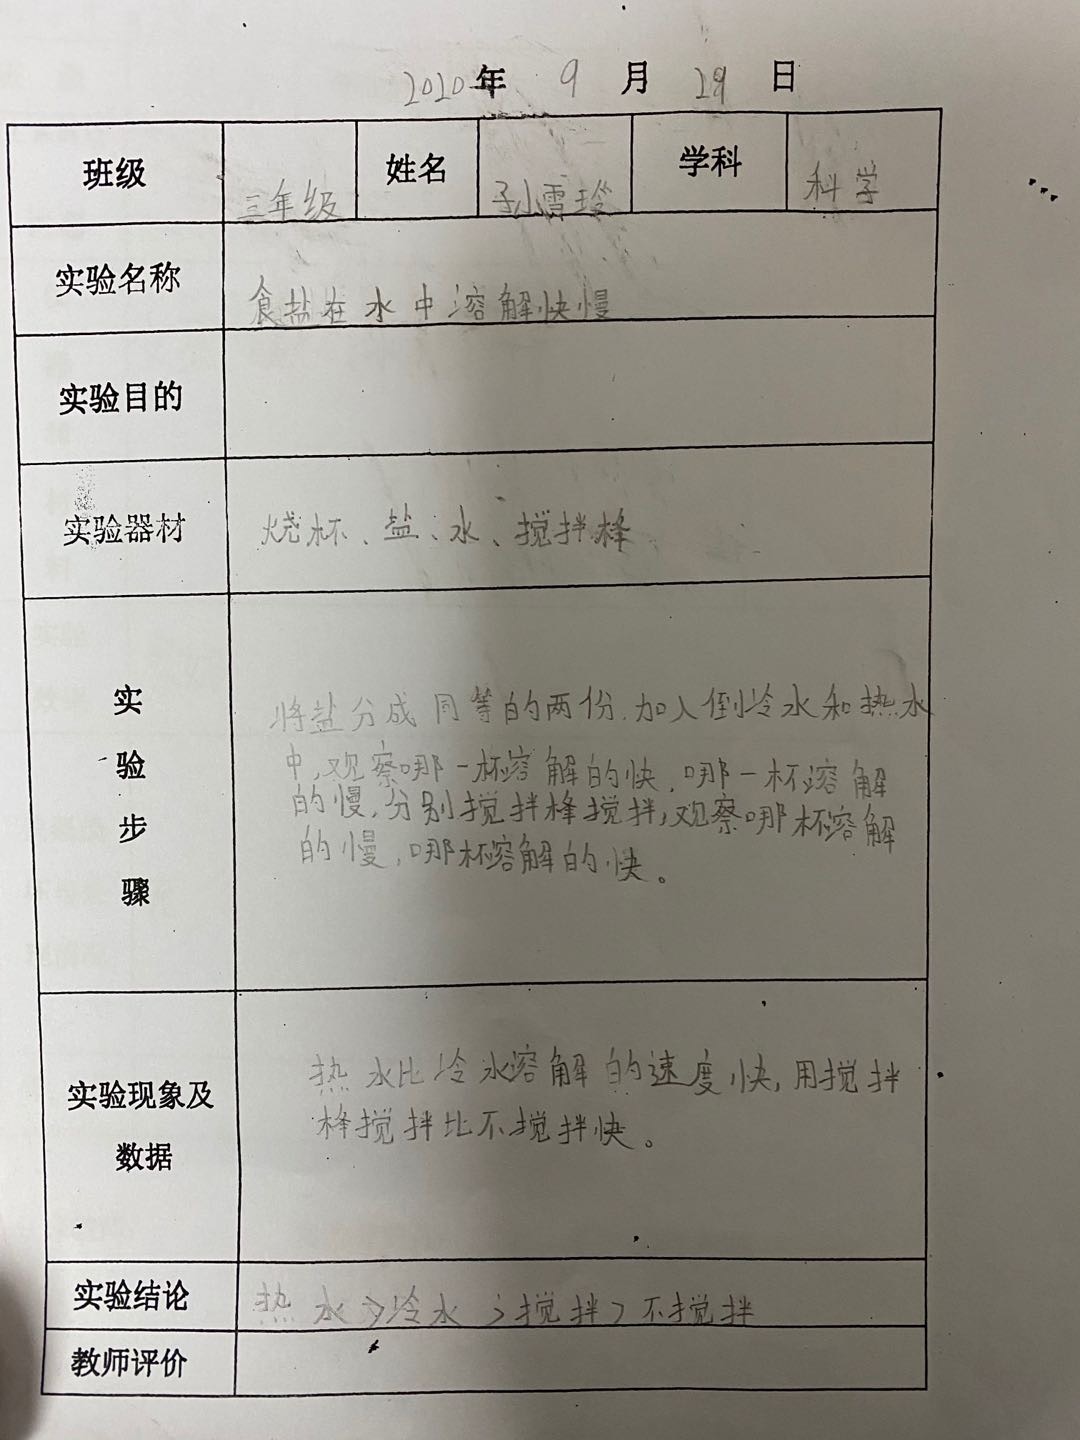 2020年 9月 29日
班级 三年级 姓名 孙雪玲 学科 科学
实验名称 食盐在水中溶解快慢
实验目的
实验器材 烧杯、盐、水、搅拌棒
实验步骤
将盐分成同等的两份.加入倒冷水和热水
中,观察哪一杯溶解的快,哪一杯溶解
的慢,分别搅拌棒搅拌,观察哪杯溶解
的慢,哪杯溶解的快。
实验现象及
数据
热水比冷水溶解的速度快,用搅拌
棒搅拌比不搅拌快。
实验结论 热水>冷水 >搅拌>不搅拌
教师评价